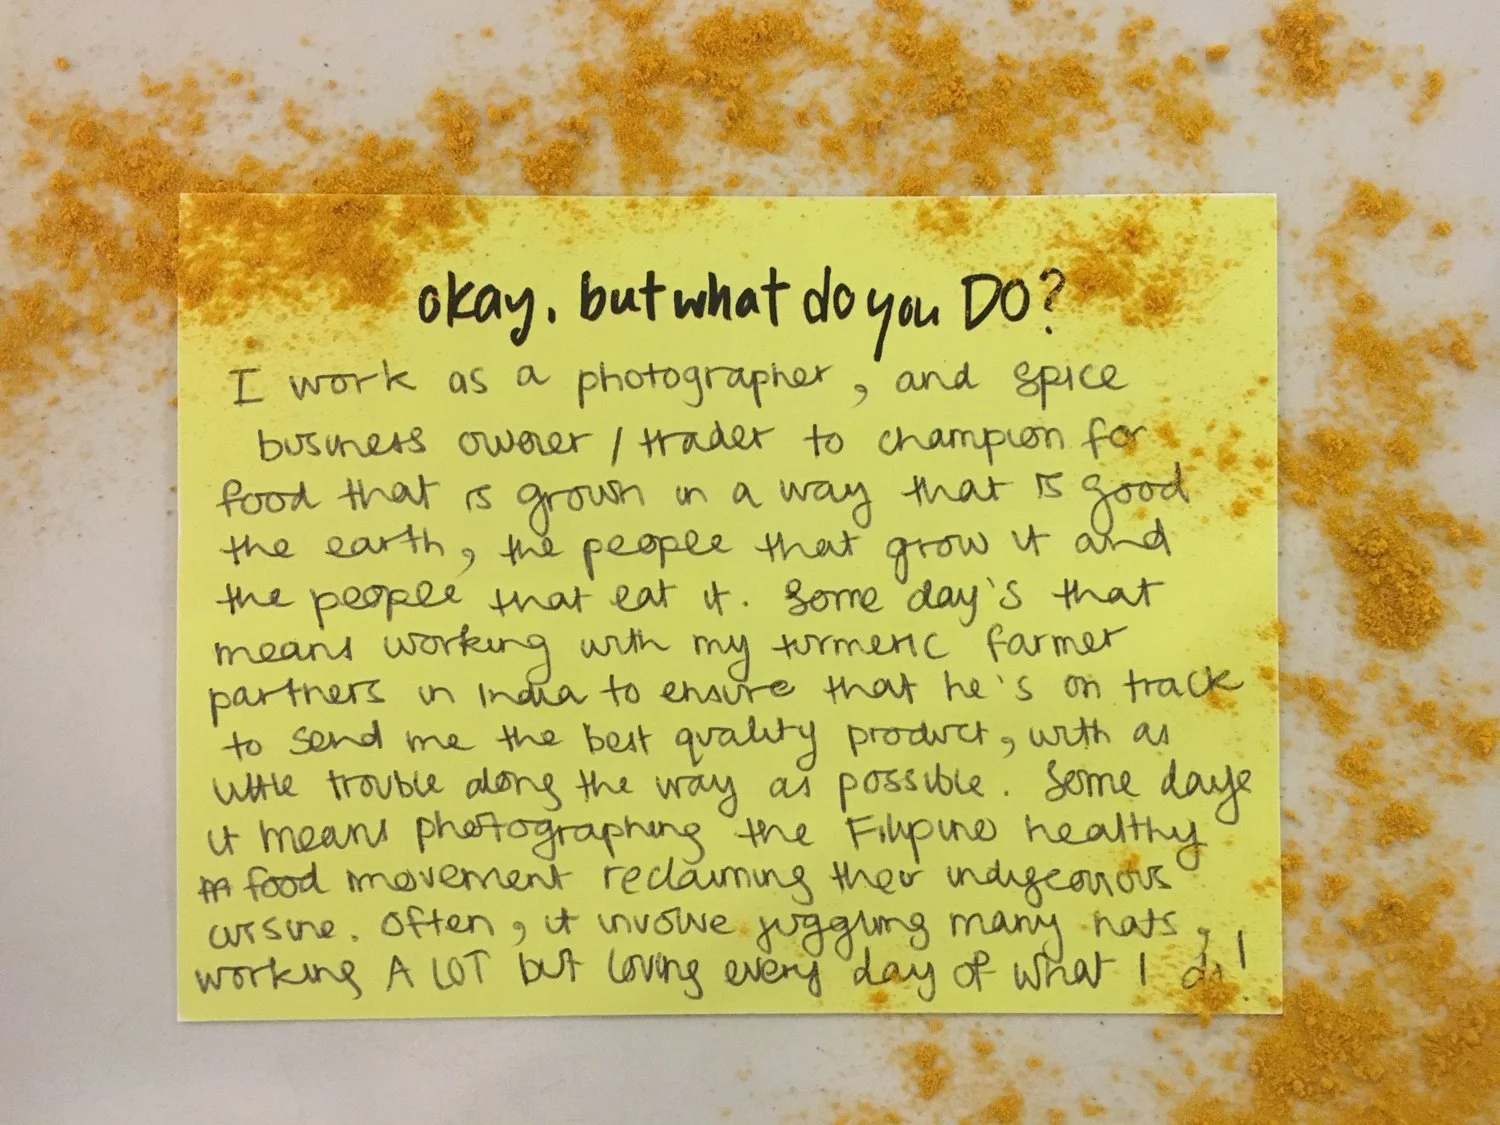 okay, but what do you DO?
I work as a photographer, and spice
business owner / trader to champion for
food that is grown in a way that is good
the earth, the people that grow it and
the people that eat it. Some day's that
means working with my turmeric farmer
partners in India to ensure that he's on track
to send me the best quality product, with as
little trouble along the way as possible. Some days
it means photographing the Filipino healthy
food movement reclaiming their indigenous
cuisine. Often, it involve juggling many hats,
working A LOT but loving every day of what I do!